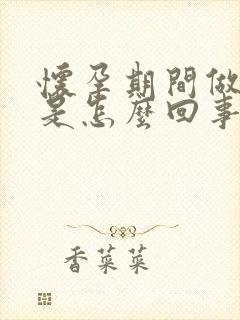 懷孕期間做
是怎麼回事
香菜菜